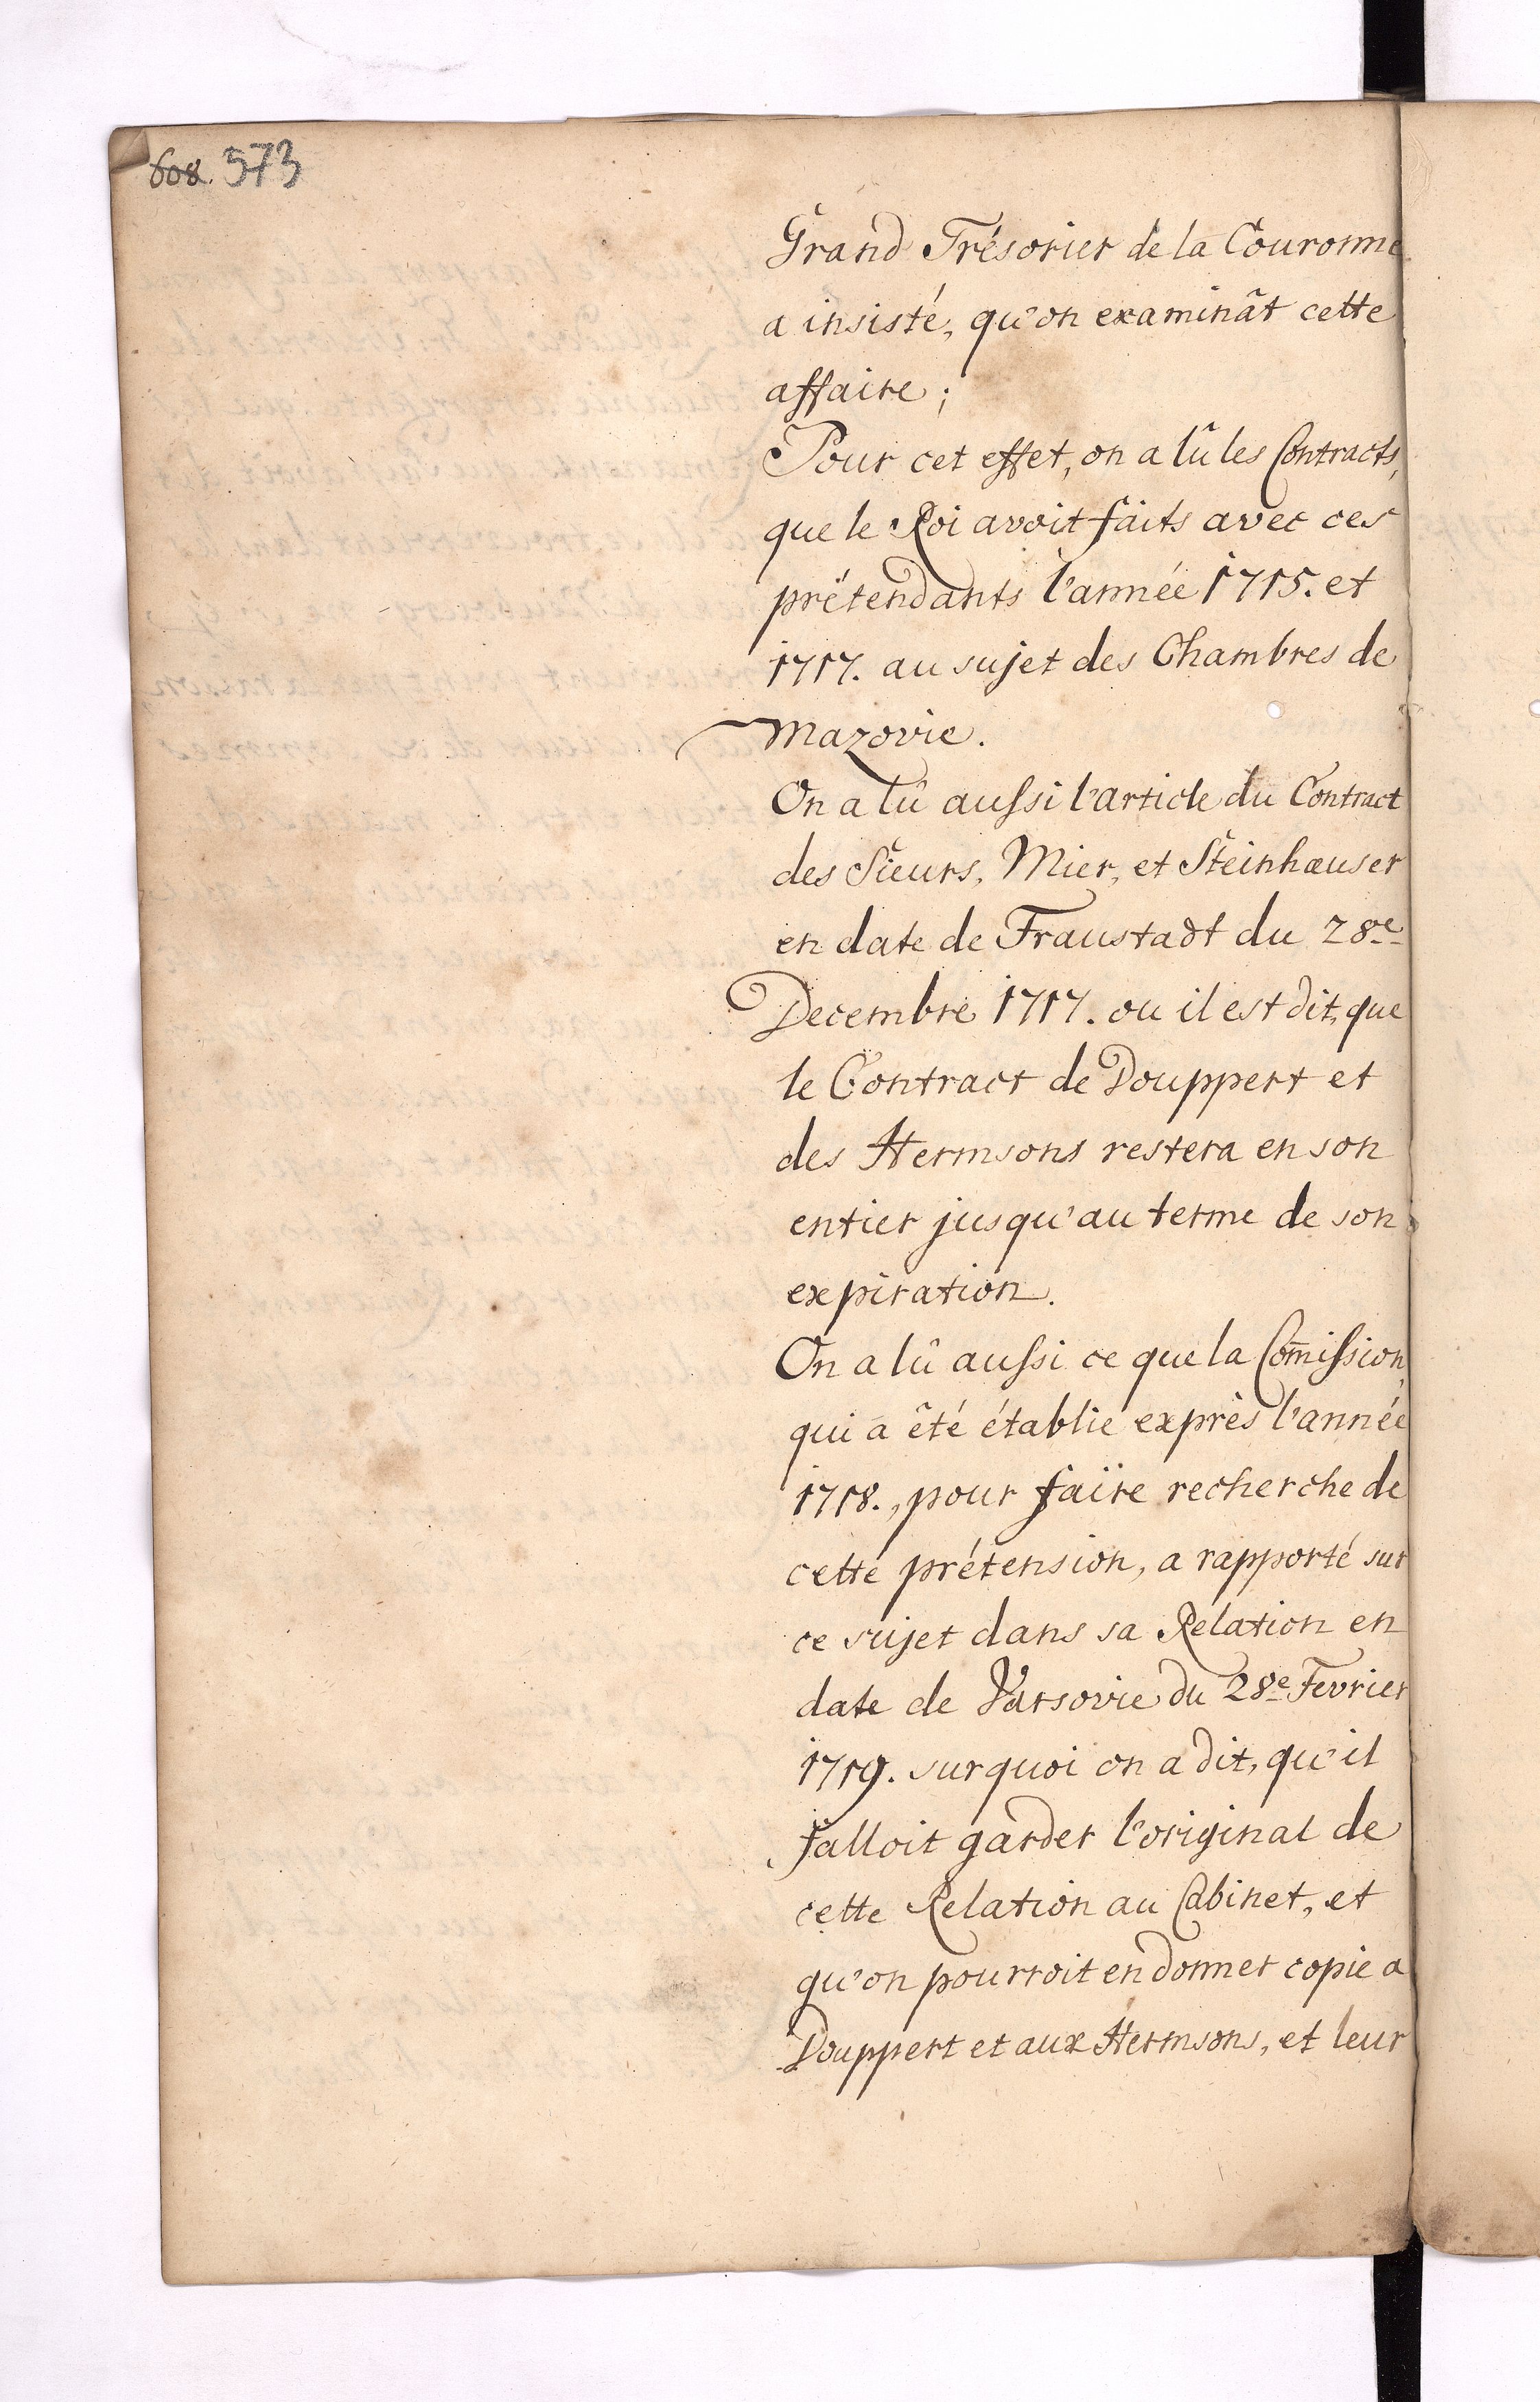 608. 573
Grand Trésorier de la Couronne
a insisté, qu'on examinât cette
affaire;
Pour cet effet, on a lû les Contracts,
que le Roi avoit faits avec ces
prétendants l'année 1715. et
1717. au sujet des Chambres de
Mazovie.
On a lû aussi l'article du Contract
des Sieurs, Mier, et Steinhæuser
en date de Fraustadt du 28e
Decembre 1717. ou il est dit, que
le Contract de Douppert et
des Hermsons restera en son
entier jusqu'au terme de son
expiration.
On a lû aussi ce que la Com̄ission,
qui a êté établie exprès l'année
1718., pour faire recherche de
cette prétension, a rapporté sur
ce sujet dans sa Relation en
date de Varsovie du 28e Fevrier
1719. surquoi on a dit, qu'il
falloit garder l'original de
cette Relation au Cabinet, et
qu'on pourroit en donner copie a
Douppert et aux Hermsons, et leur